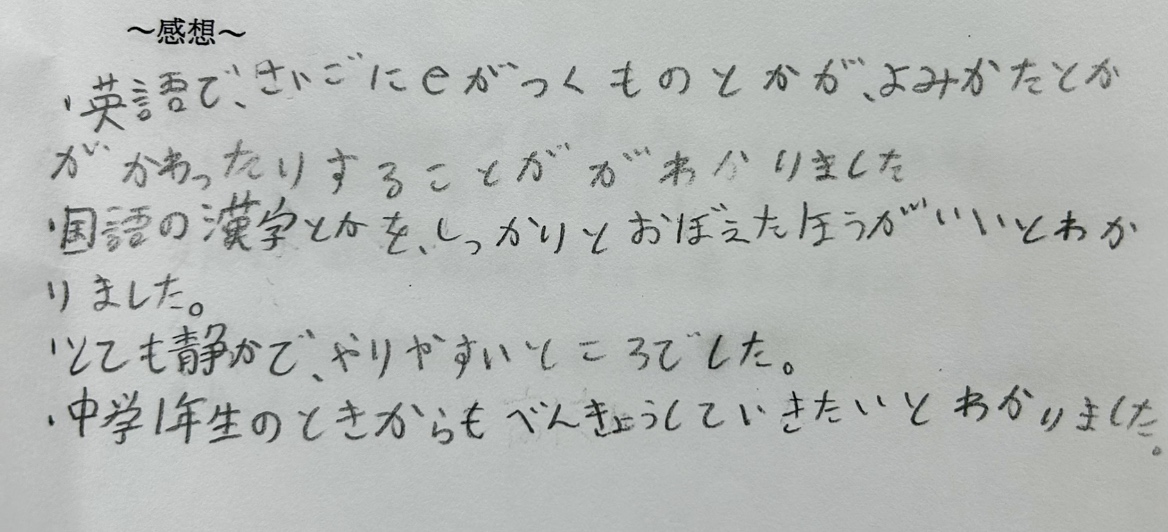 ～感想～
・英語で、さいごにeがつくものとかが、よみかたとか
がかわったりすることががわかりました
・国語の漢字とかを、しっかりとおぼえたほうがいいとわか
りました。
・とても静かで、やりやすいところでした。
・中学1年生のときからもべんきょうしていきたいとわかりました。